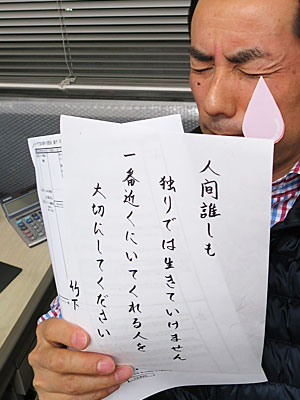 人間誰しも
独りでは生きていけません
一番近くにいてくれる人を
大切にしてください
竹下